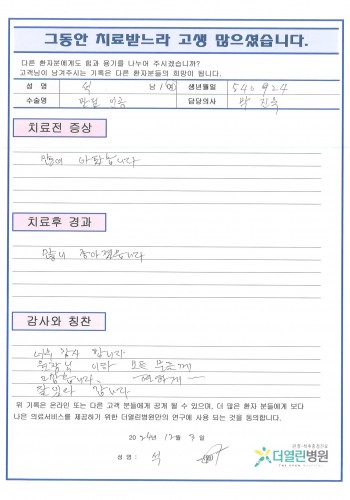 그동안 치료받느라 고생 많으셨습니다.
다른 환자분에게도 힘과 용기를 나누어 주시겠습니까?
고객님이 남겨주시는 기록은 다른 환자분들의 희망이 됩니다.
성 명 석 남 / 여 생년월일 540924
수술명 담당의사 박 진욱
치료전 증상
많이 아팠습니다
치료후 경과
많이 좋아졌습니다
감사와 칭찬
너무 감사 합니다
원장님 이하 모든 분들께
편하게
잘있다 갑니다
위 기록은 온라인 또는 다른 고객 분들에게 공개 될 수 있으며, 더 많은 환자 분들에게 보다
나은 의료서비스를 제공하기 위한 더열린병원만의 연구에 사용 되는 것을 동의합니다.
12월 7일
성 명 : 석
더열린병원